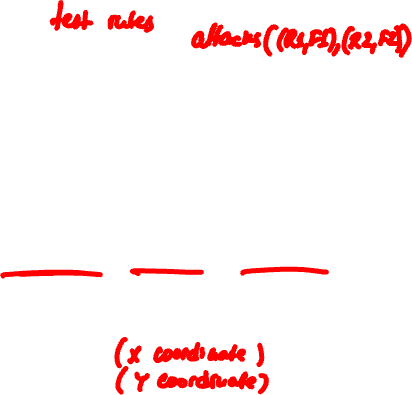 test rules
attacks((R1,F1),(R2,F2))
(X coordinate)
(Y coordinate)